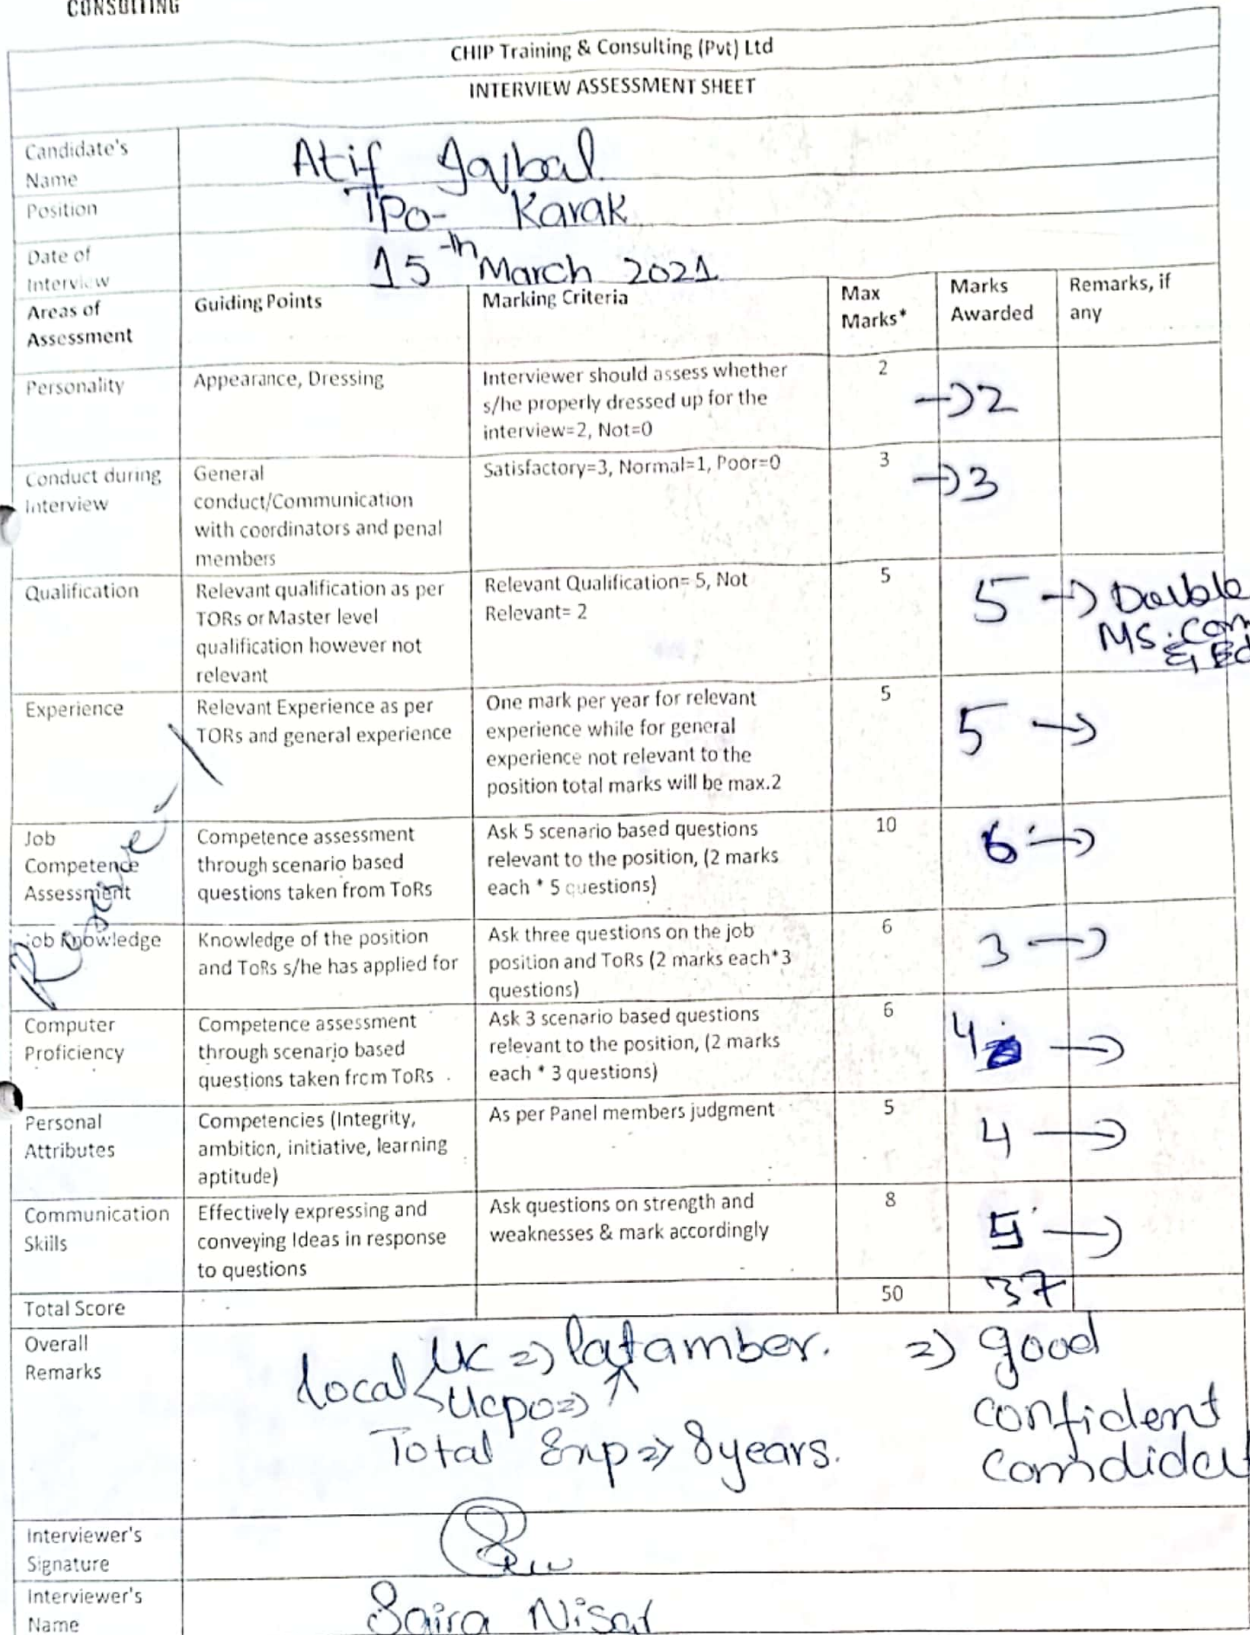 CONSULTING
CHIP Training & Consulting (Pvt) Ltd
INTERVIEW ASSESSMENT SHEET
Candidate's
Name
Atif Iqbal
Position
TPO- Karak
Date of
Interview
15th March 2021
Areas of
Assessment
Guiding Points
Marking Criteria
Max
Marks*
Marks
Awarded
Remarks, if
any
Personality
Appearance, Dressing
Interviewer should assess whether
s/he properly dressed up for the
interview=2, Not=0
2
→2
Conduct during
Interview
General
conduct/Communication
with coordinators and penal
members
Satisfactory=3, Normal=1, Poor=0
3
→3
Qualification
Relevant qualification as per
TORs or Master level
qualification however not
relevant
Relevant Qualification= 5, Not
Relevant= 2
5
5 → Double
MS.com
& Ed
Experience
Relevant Experience as per
TORs and general experience
One mark per year for relevant
experience while for general
experience not relevant to the
position total marks will be max.2
5
5 →
Reserve-1
Job
Competence
Assessment
Competence assessment
through scenario based
questions taken from ToRs
Ask 5 scenario based questions
relevant to the position, (2 marks
each * 5 questions)
10
6 →
Job Knowledge
Knowledge of the position
and ToRs s/he has applied for
Ask three questions on the job
position and ToRs (2 marks each*3
questions)
6
3 →
Computer
Proficiency
Competence assessment
through scenario based
questions taken from ToRs
Ask 3 scenario based questions
relevant to the position, (2 marks
each * 3 questions)
6
4 →
Personal
Attributes
Competencies (Integrity,
ambition, initiative, learning
aptitude)
As per Panel members judgment
5
4 →
Communication
Skills
Effectively expressing and
conveying Ideas in response
to questions
Ask questions on strength and
weaknesses & mark accordingly
8
5 →
Total Score
50
37
Overall
Remarks
local UC => latamber.
Ucpo =>
Total Exp => 8 years.
=> good
confident
Interviewer's
Signature
Interviewer's
Name
Saira Nisar